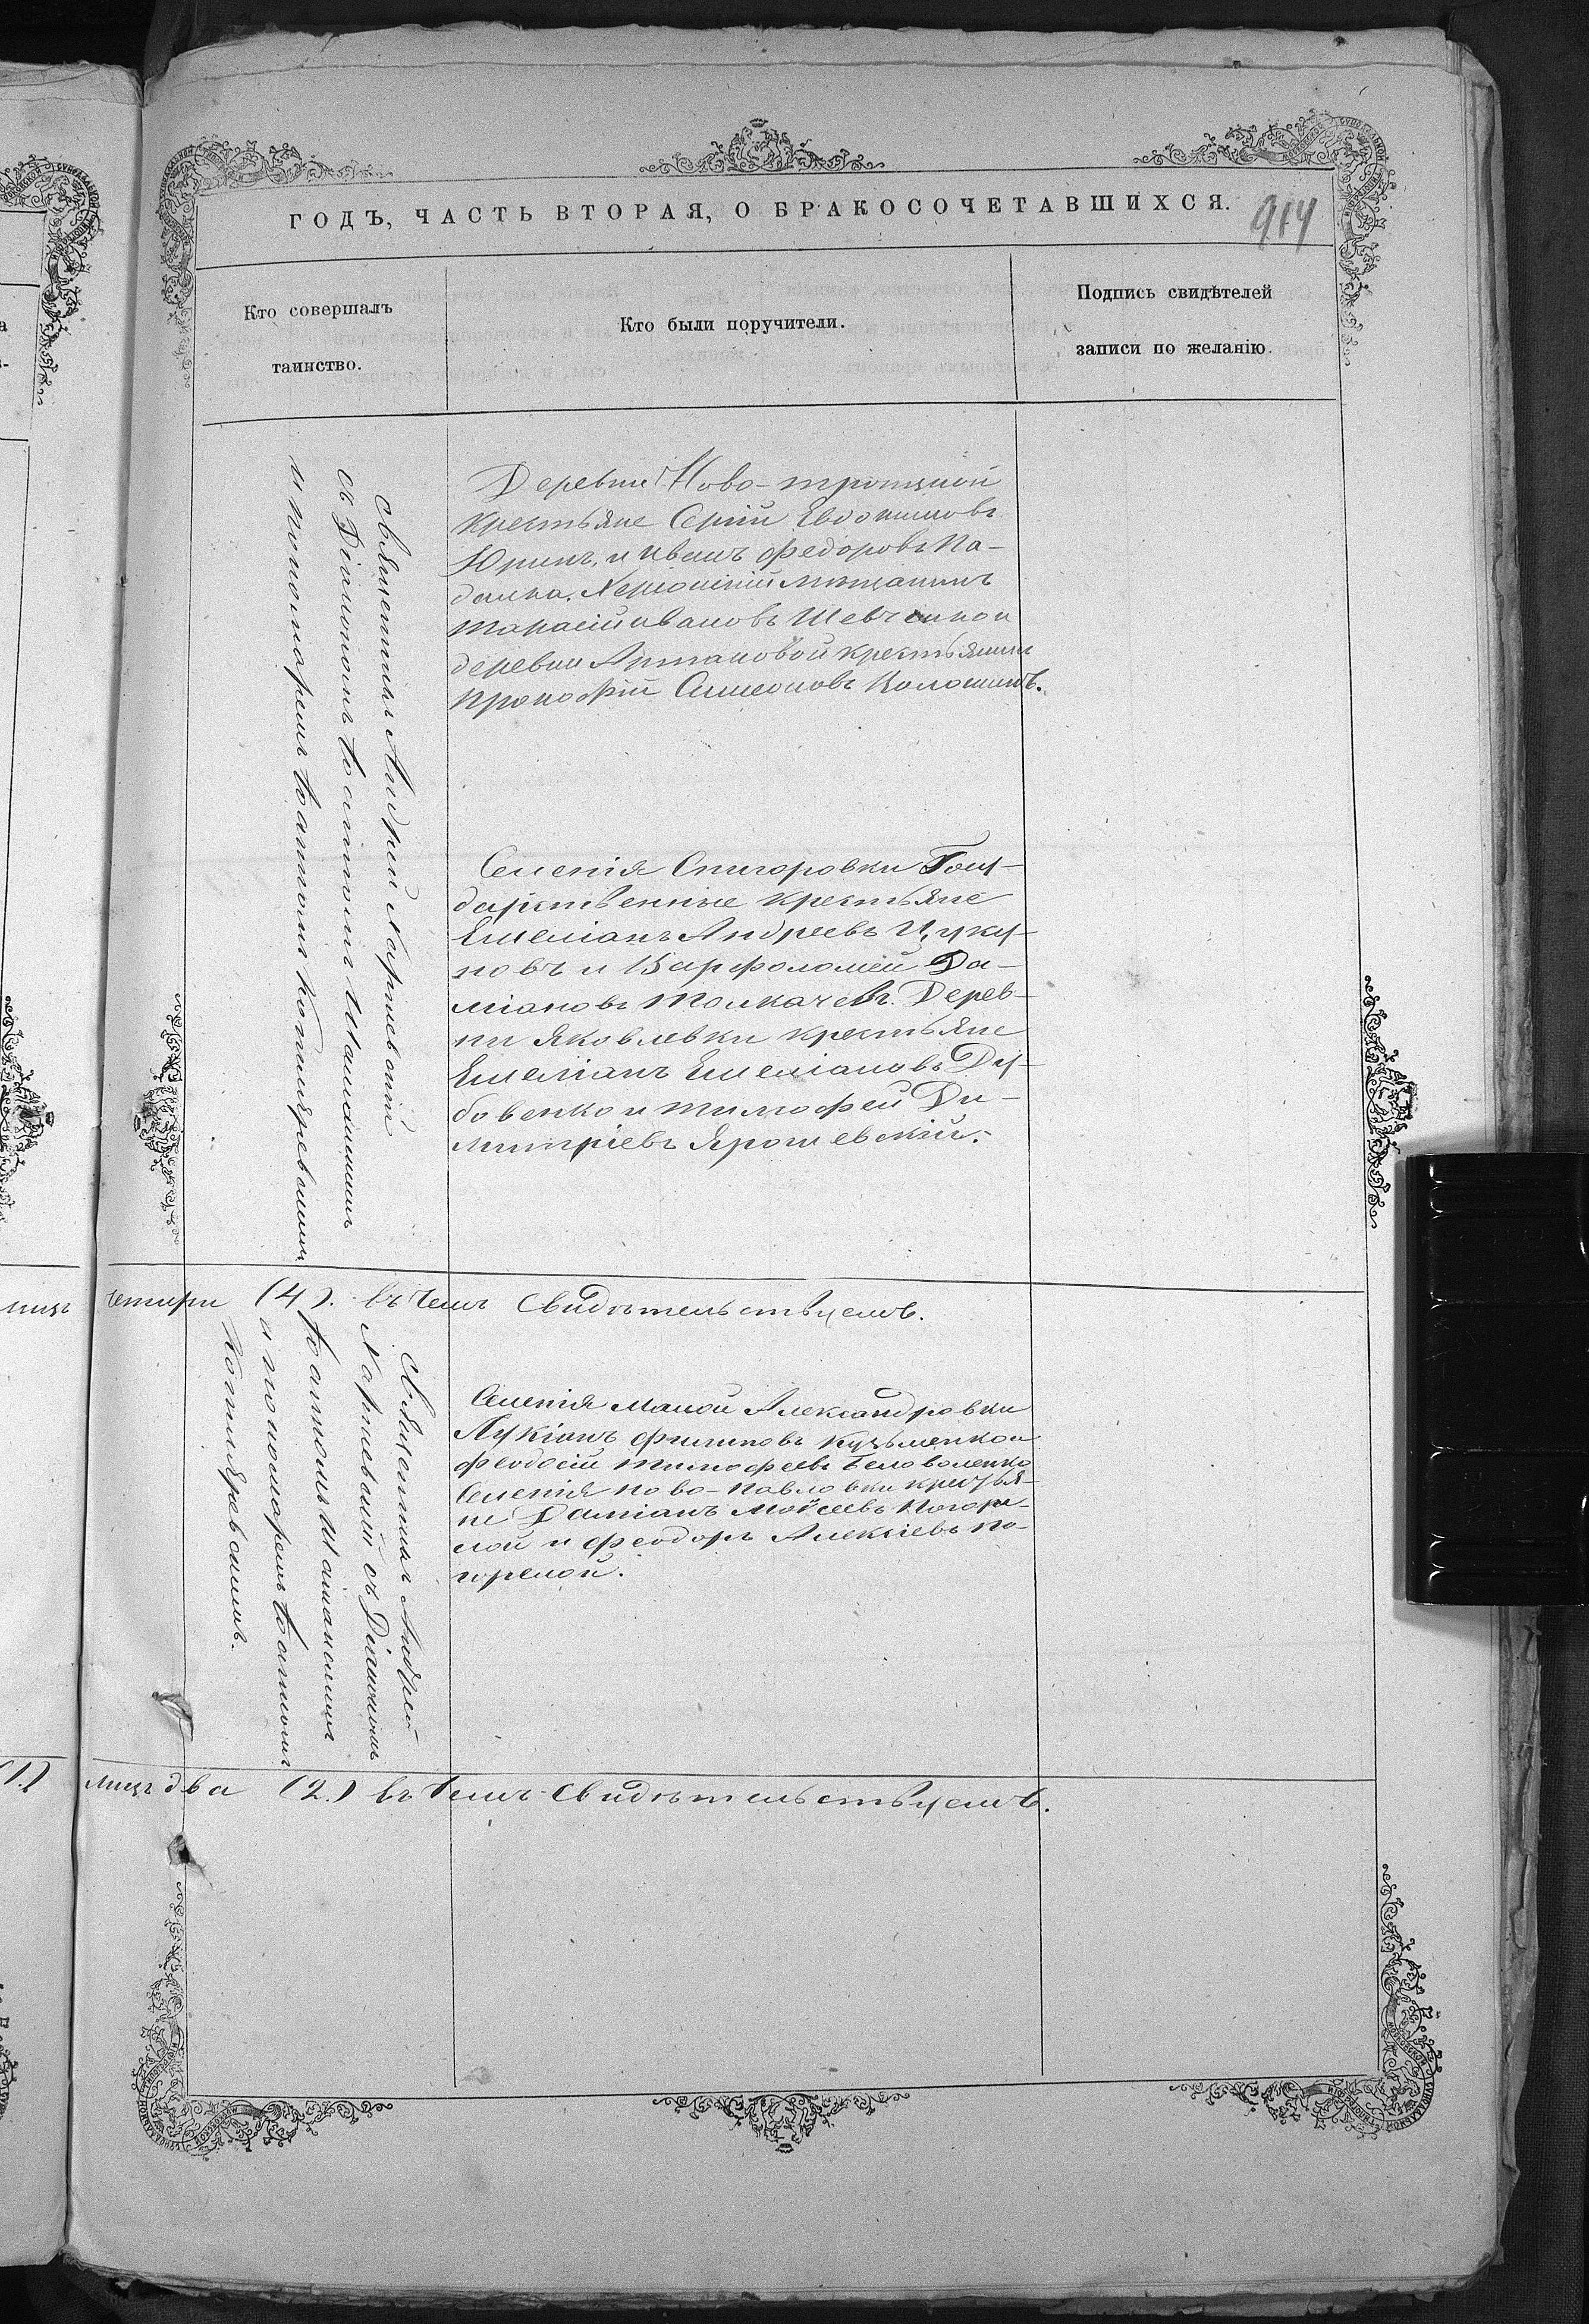 ГОДЪ, ЧАСТЬ ВТОРАЯ, О БРАКОСОЧЕТАВШИХСЯ.
914
Кто совершалъ
таинство.
Кто были поручители.
Подпись свидѣтелей
записи по желанію.
Священникъ Андрей
съ Діакономъ
и пономаремъ
Деревни Ново-троицкой
крестьяне Сергій Евдокимовъ
Юринъ, и Иванъ Федоровъ Па-
далка. Херсонскій мѣщанинъ
Тарасій Ивановъ Шевченко и
деревни крестьянинъ
Прокофій Симеоновъ Волошинъ.
Селенія Снигоровки Госу-
дарственные крестьяне
Емеліанъ Андреевъ Цуку-
новъ и Варфоломей Да-
міановъ Толкачевъ. Дерев-
ни Яковлевки крестьяне
Емеліанъ Емеліановъ Ду-
бовенко и Тимофей Ди-
митріевъ Ярошевскій.
четыри (4). въ чемъ свидѣтельствуемъ.
Священникъ Андрей
съ Діакономъ
и пономаремъ
Селенія Малой Александровки
Лукіанъ Филиповъ Кузьменко и
Феодосій Тимофеевъ
Селенія Ново-Павловки крестья-
не Даміанъ Моисеевъ Погоре-
лой и Феодоръ Алексіевъ По-
горелой.
(1.) лицъ два (2.) въ чемъ свидѣтельствуемъ.